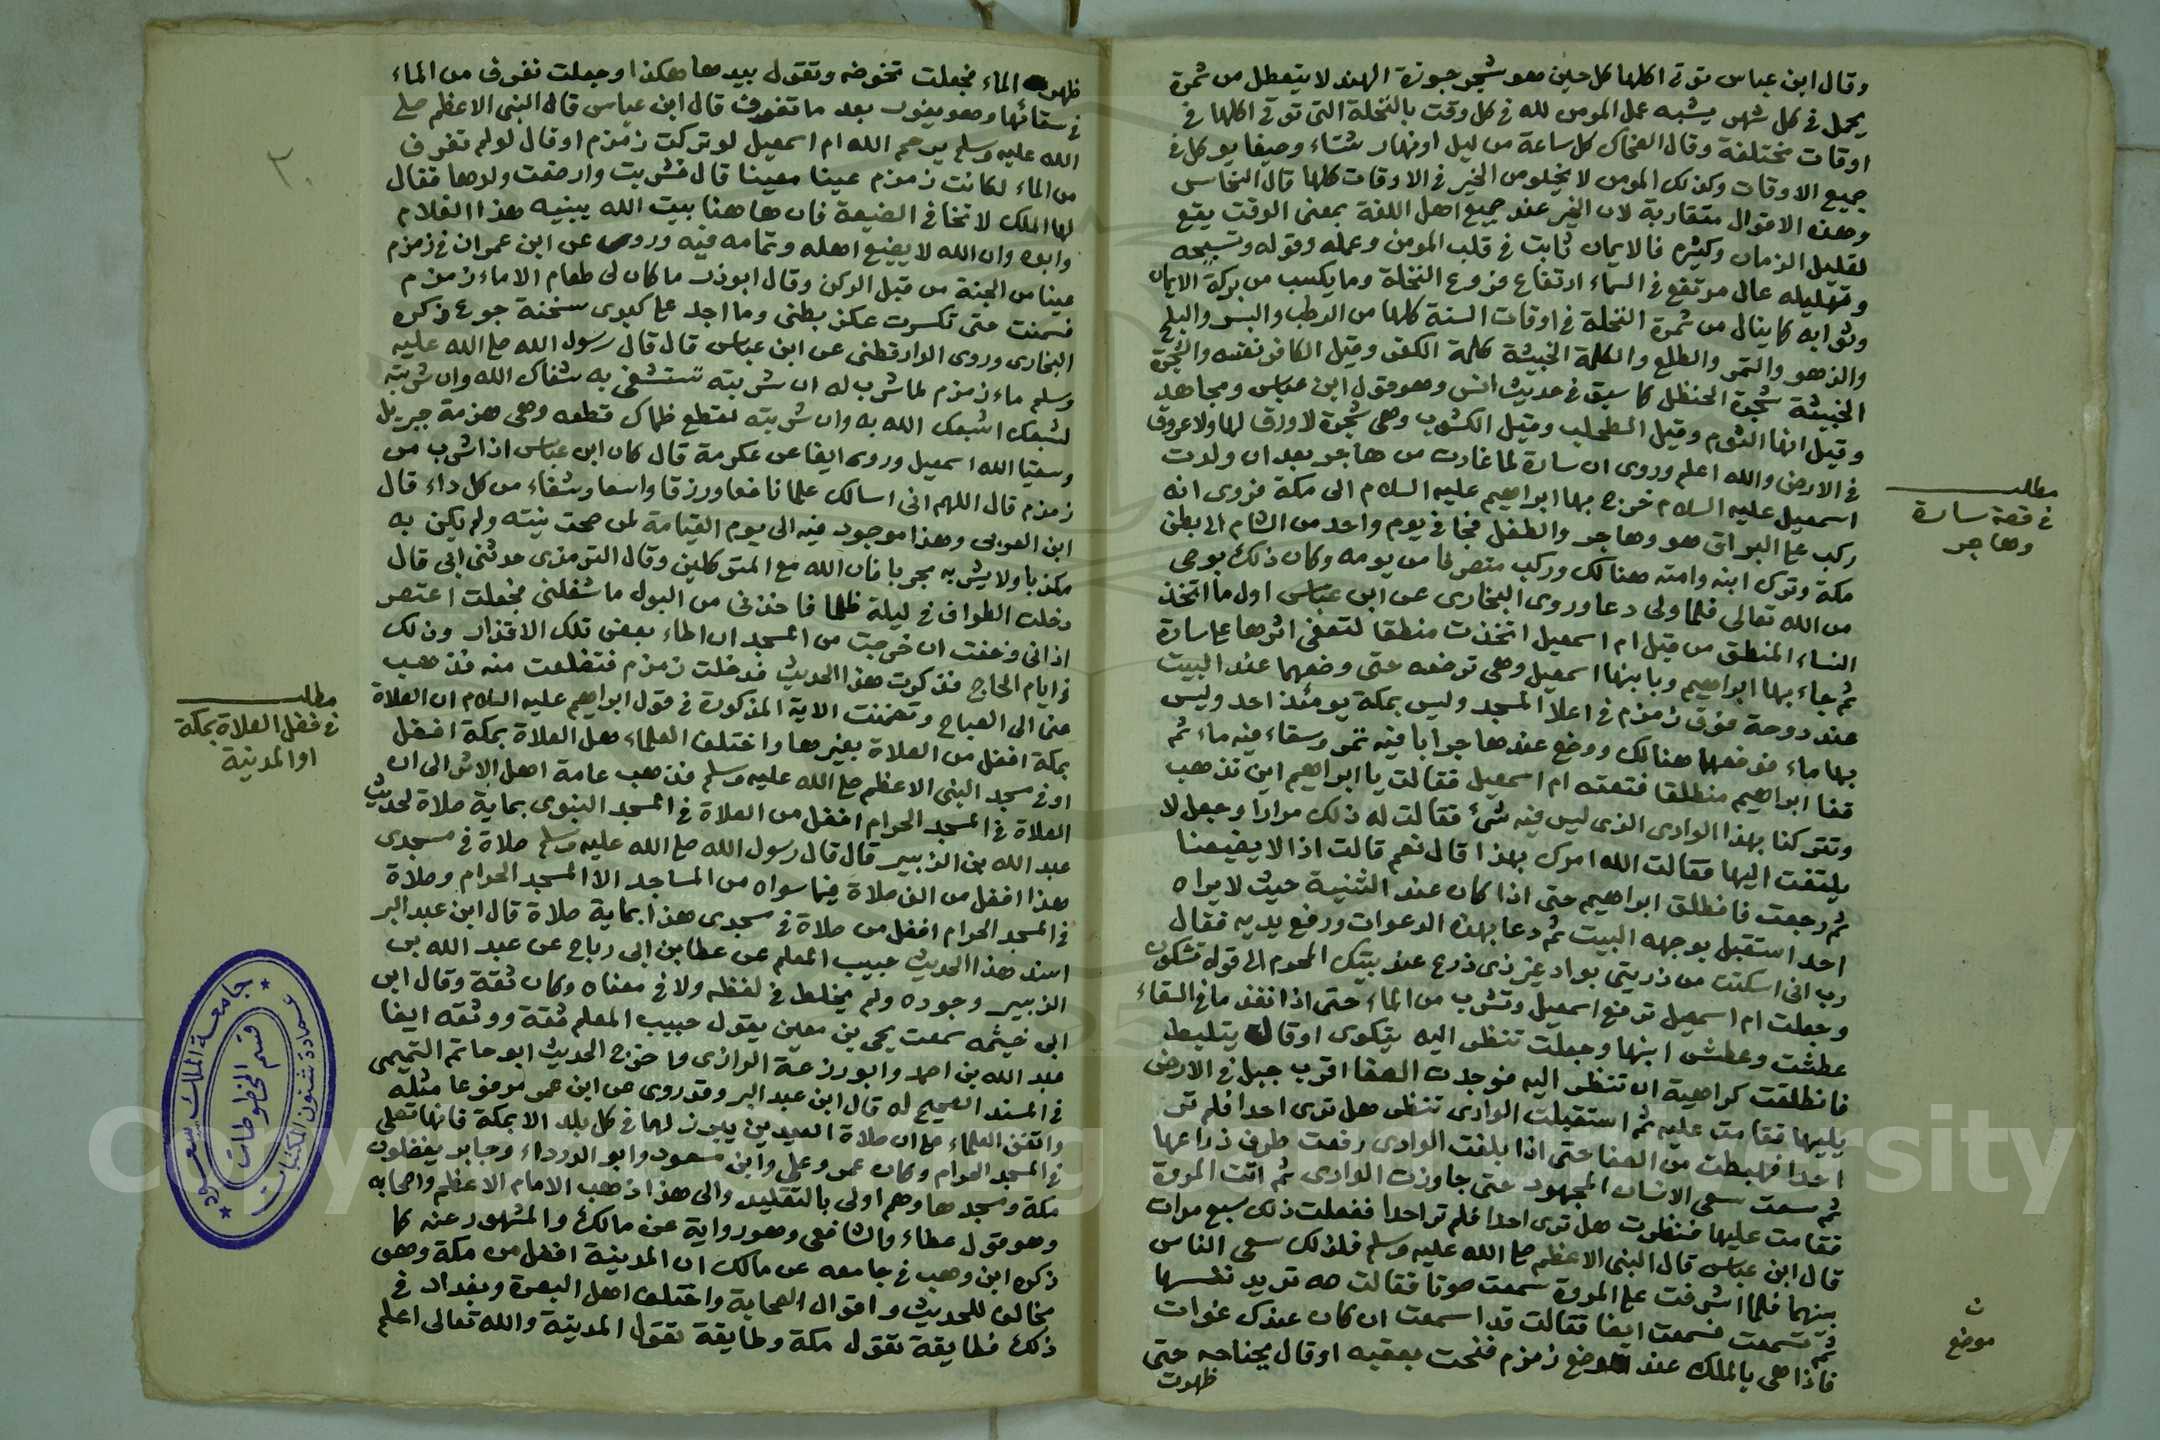 وقال ابن عباس توتى اكلها كل حين هو شجر جوزة الهند لا يتعطل من ثمرة
يحمل في كل شهر يشبه عمل المومن لله في كل وقت بالنخلة التى توتى اكلها في
اوقات مختلفة وقال الضحاك كل ساعة من ليل او نهار شتاء وصيفا يوكل في
جميع الاوقات وكذلك المومن لا يخلو من الخير في الاوقات كلها قال النحاس
وهذه الاقوال متقاربة لان الخير عند جميع اهل اللغة بمعنى الوقت يقع
لقليل الزمان وكثيره فالايمان ثابت في قلب المومن وعمله وقوله وتسبيحه
وتهليله عال مرتفع في السماء ارتفاع فروع النخلة وما يكسب من بركة الايمان
وثوابه كما ينال من ثمرة النخلة في اوقات السنة كلها من الرطب والبسر والبلح
والزهو والتمر والطلع والكلمة الخبيثة كلمة الكفر وقيل الكافر نفسه والشجرة
الخبيثة شجرة الحنظل كما سبق في حديث انس وهو قول ابن عباس ومجاهد
وقيل انها الثوم وقيل الطحلب وقيل الكشوب وهى شجرة لا ورق لها ولا عروق
في الارض والله اعلم وروى ان سارة لما غارت من هاجر بعد ان ولدت
اسمعيل عليه السلام خرج بها ابراهيم عليه السلام الى مكة فروى انه
ركب على البراق هو وهاجر والطفل فجا في يوم واحد من الشام الى بطن
مكة وترك ابنه وامته هنالك وركب منصرفا من يومه وكان ذلك بوحى
من الله تعالى فلما ولى دعا وروى البخارى عن ابن عباس اول ما اتخذ
النساء المنطق من قبل ام اسمعيل اتخذت منطقا لتعفى اثرها على سارة
ثم جاء بها ابراهيم وبابنها اسمعيل وهى ترضعه حتى وضعهما عند البيت
عند دوحة فوق زمزم في اعلا المسجد وليس بمكة يومئذ احد وليس
بها ماء فوضعهما هنالك ووضع عندها جرابا فيه تمر وسقاء فيه ماء ثم
قفا ابراهيم منطلقا فتبعته ام اسمعيل فقالت يا ابراهيم اين تذهب
وتتركنا بهذا الوادى الذى ليس فيه شئ فقالت له ذلك مرارا وجعل لا
يلتفت اليها فقالت الله امرك بهذا قال نعم قالت اذا لا يضيعنا
ثم رجعت فانطلق ابراهيم حتى اذا كان عند الثنية حيث لا يراه
احد استقبل بوجهه البيت ثم دعا بهذه الدعوات ورفع يديه فقال
رب انى اسكنت من ذريتى بواد غير ذى ذرع عند بيتك المحرم الى قوله تشكون
وجعلت ام اسمعيل ترضع اسمعيل وتشرب من الماء حتى اذا نفذ ما في السقاء
عطشت وعطش ابنها وجعلت تنظر اليه يتكوى او قال يتلبط
فانطلقت كراهية ان تنظر اليه فوجدت الصفا اقرب جبل في الارض
يليها فقامت عليه ثم استقبلت الوادى تنظر هل ترى احدا فلم تر
احدا فهبطت من الصفا حتى اذا بلغت الوادى رفعت طرف ذراعها
ثم سعت سعى الانسان المجهود حتى جاوزت الوادى ثم اتت المروة
فقامت عليها فنظرت هل ترى احدا فلم تر احدا ففعلت ذلك سبع مرات
قال ابن عباس قال النبى الاعظم صلى الله عليه وسلم فلذلك سعى الناس
بينهما فلما اشرفت على المروة سمعت صوتا فقالت صه تريد نفسها
ثم تسمعت فسمعت ايضا فقالت قد اسمعت ان كان عندك غوات
فاذا هى بالملك عند موضع زمزم فنحت بعقبه او قال بجناحه حتى
ظهرت
مطلب
في قصة سارة
وهاجر
ن
موضع
ظهر الماء فجعلت تخوضه وتقول بيدها هكذا وجعلت تغرف من الماء
في سقائها وهو يفور بعد ما تغرف قال ابن عباس قال النبى الاعظم صلى
الله عليه وسلم يرحم الله ام اسمعيل لو تركت زمزم او قال لو لم تغرف
من الماء لكانت زمزم عينا معينا قال فشربت وارضعت ولدها فقال
لها الملك لا تخافى الضيعة فان هاهنا بيت الله يبنيه هذا الغلام
وابوه وان الله لا يضيع اهله وتمامه فيه وروى عن ابن عمر ان في زمزم
عينا من الجنة من قبل الركن وقال ابو ذر ما كان لى طعام الا ماء زمزم
فسمنت حتى تكسرت عكن بطنى وما اجد على كبدى سخنة جوع ذكره
البخارى وروى الدارقطنى عن ابن عباس قال قال رسول الله صلى الله عليه
وسلم ماء زمزم لما شرب له ان شربته تستشفى به شفاك الله وان شربته
لشبعك اشبعك الله به وان شربته لقطع ظماك قطعه وهى هزمة جبريل
وسقيا الله اسمعيل وروى ايضا عن عكرمة قال كان ابن عباس اذا شرب من
زمزم قال اللهم انى اسالك علما نافعا ورزقا واسعا وشفاء من كل داء قال
ابن العربى وهذا موجود فيه الى يوم القيامة لمن صحت نيته ولم يكن به
مكذبا ولا يشربه مجربا فان الله مع المتوكلين وقال الترمذى حدثنى ابى قال
دخلت الطواف في ليلة ظلما فاخذنى من البول ما شغلنى فجعلت اعتصر
اذانى وخفت ان خرجت من المسجد ان اطاء بعض تلك الاقذار وذلك
في ايام الحاج فذكرت هذا الحديث فدخلت زمزم فتضلعت منه فذهب
عنى الى الصباح وتضمنت الاية المذكورة في قول ابراهيم عليه السلام ان الصلاة
بمكة افضل من الصلاة بغيرها واختلف العلماء هل الصلاة بمكة افضل
او في مسجد النبى الاعظم صلى الله عليه وسلم فذهب عامة اهل الاثر الى ان
الصلاة في المسجد الحرام افضل من الصلاة في المسجد النبوى بماية صلاة لحديث
عبد الله بن الزبير قال قال رسول الله صلى الله عليه وسلم صلاة في مسجدى
هذا افضل من الف صلاة فيما سواه من المساجد الا المسجد الحرام وصلاة
في المسجد الحرام افضل من صلاة في مسجدى هذا بماية صلاة قال ابن عبد البر
اسند هذا الحديث حبيب المعلم عن عطا بن ابى رباح عن عبد الله بن
الزبير وجوده ولم يخلط في لفظه ولا في معناه وكان ثقة وقال ابن
ابى خيثمه سمعت يحى بن معين يقول حبيب المعلم ثقة ووثقه ايضا
عبد الله بن احمد وابو زرعة الرازى وخرج الحديث ابو حاتم التميمى
في المسند الصحيح له قال ابن عبد البر وقد روى عن ابن عمر مرفوعا مثله
واتفق العلماء على ان صلاة العيدين يبرز لها في كل بلد الا بمكة فانها تصلى
في المسجد الحرام وكان عمر وعلى وابن مسعود وابو الدرداء وجابر يفضلون
مكة ومسجدها وهم اولى بالتقليد والى هذا ذهب الامام الاعظم واصحابه
وهو قول عطاء والشافعى وهو رواية عن مالك والمشهور عنه كما
ذكره ابن وهب في جامعه عن مالك ان المدينة افضل من مكة وهو
مخالف للحديث واقوال الصحابة واختلف اهل البصرة وبغداد في
ذلك فطايفة تقول مكة وطايفة تقول المدينة والله تعالى اعلم
مطلب
في فضل الصلاة بمكة
او المدينة
٣٠
جامعة الملك سعود
عمادة شئون المكتبات
قسم المخطوطات